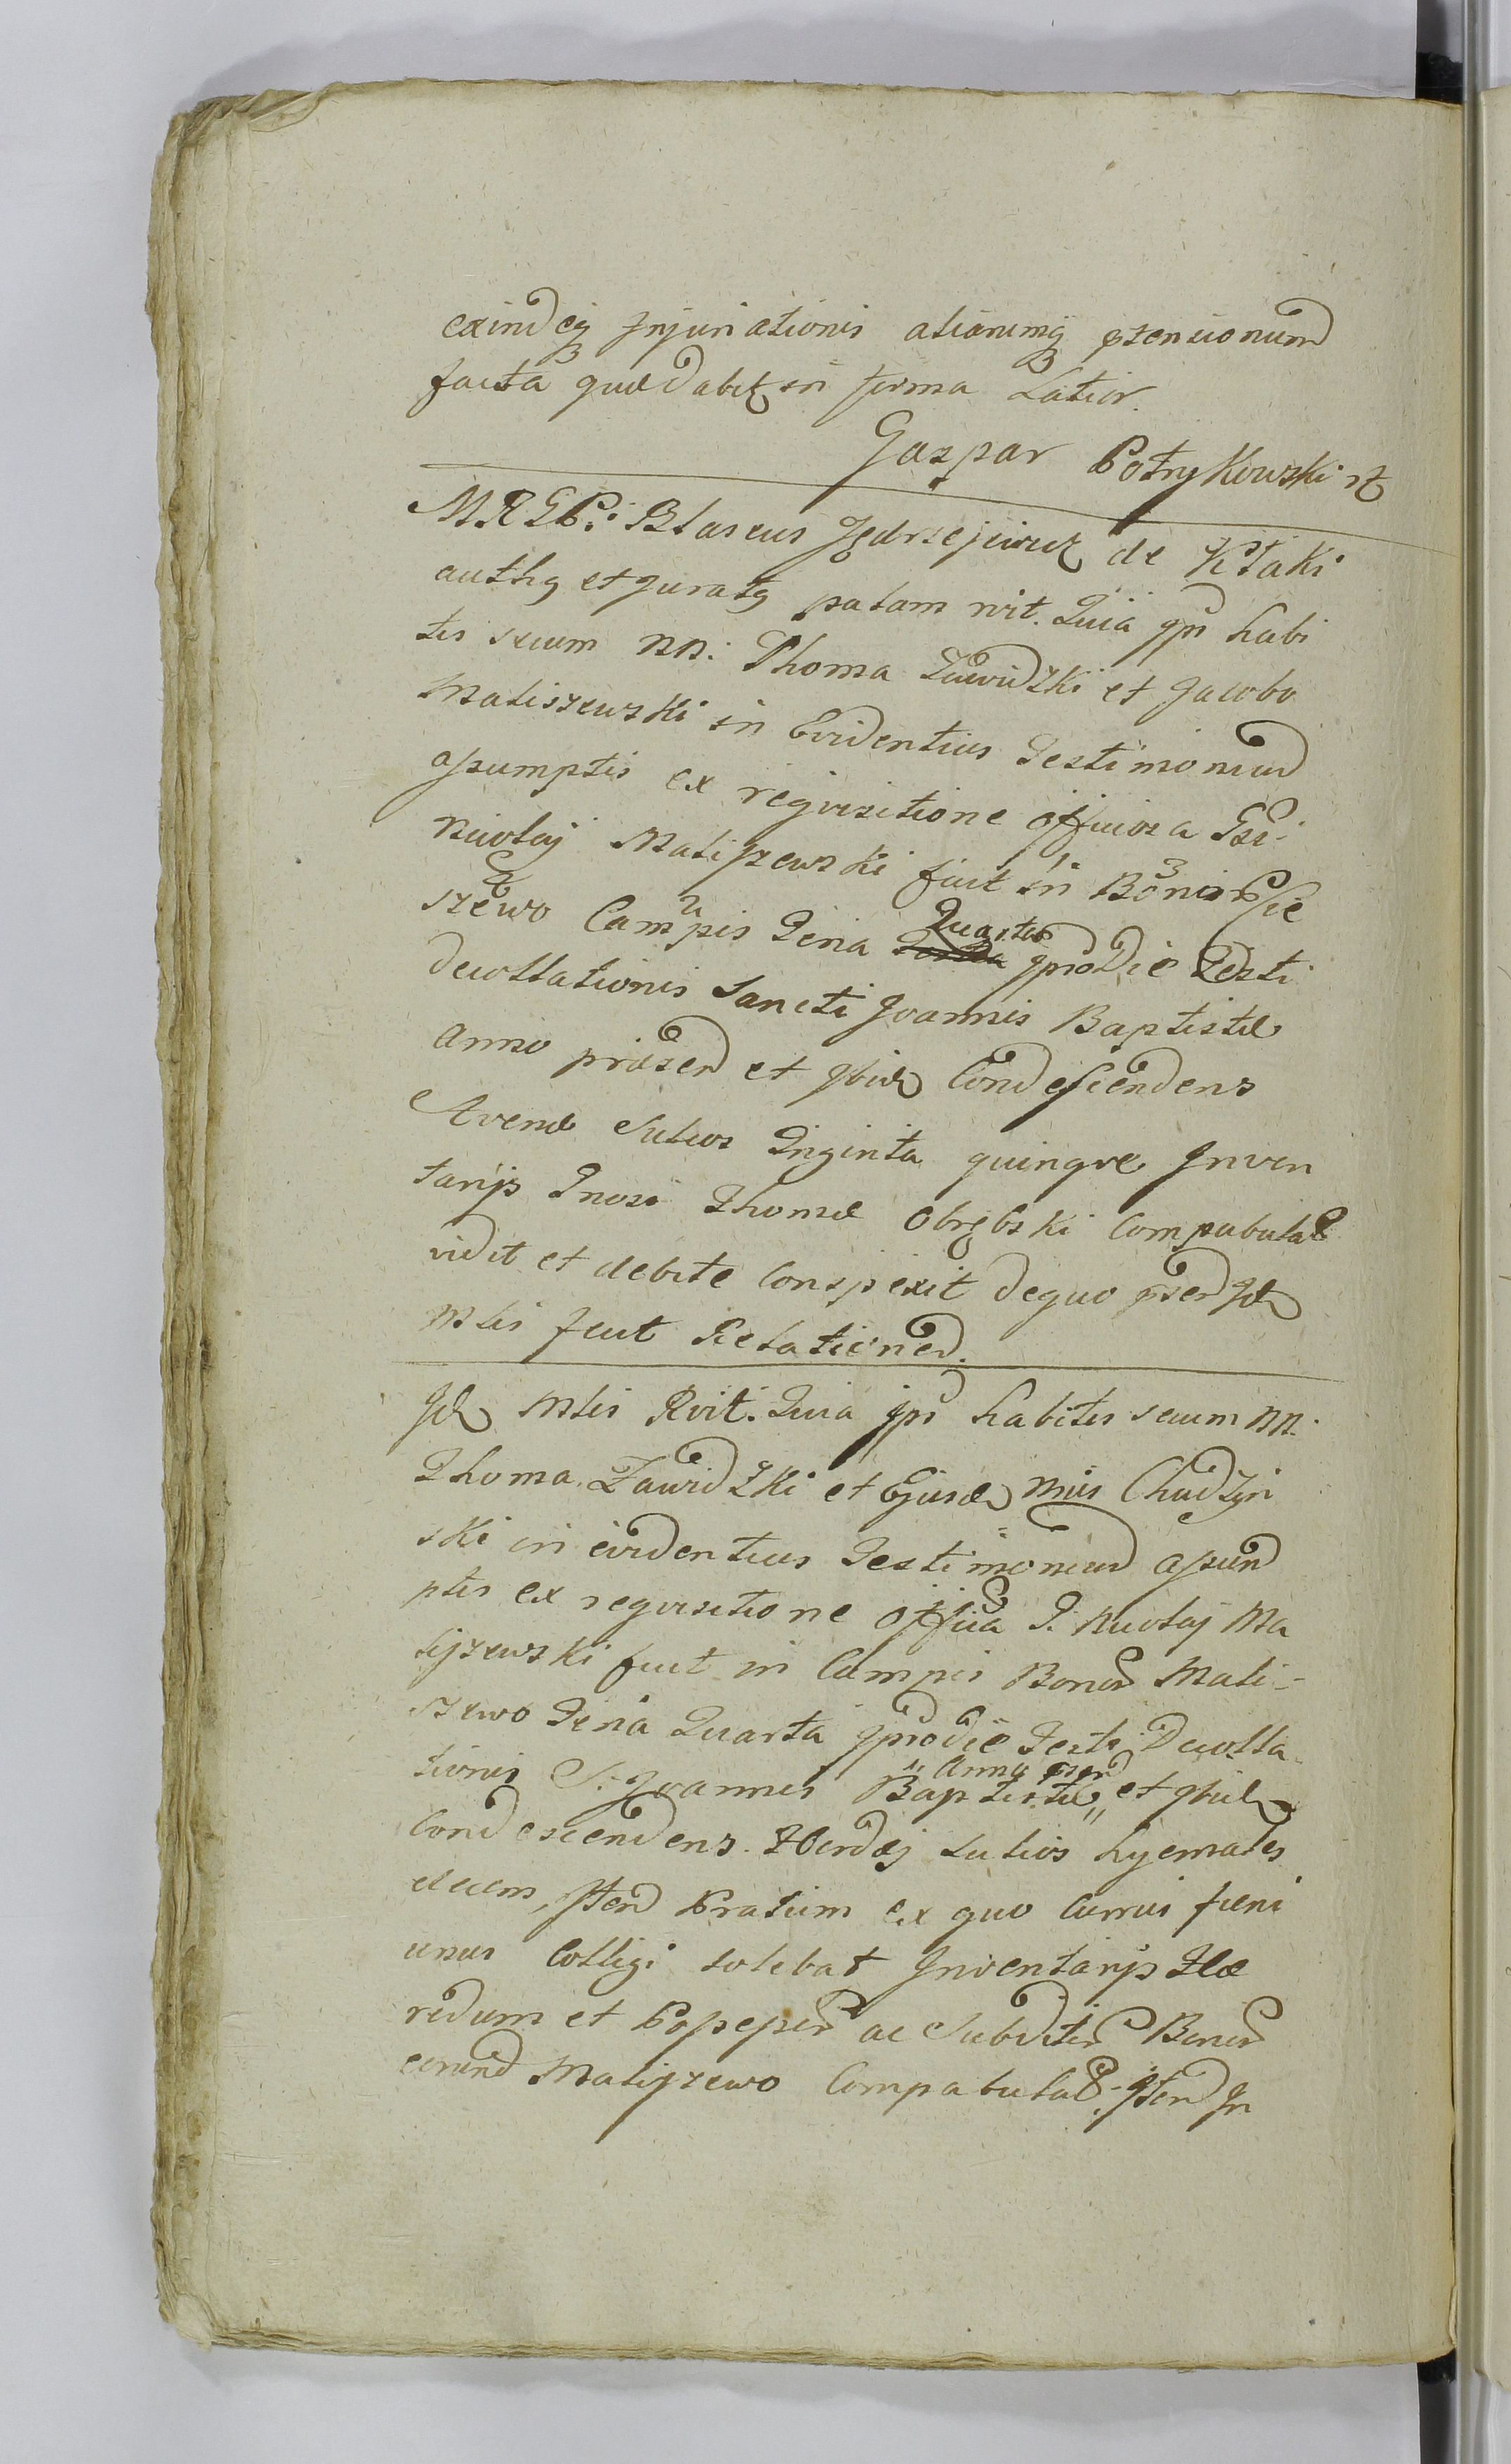 exindeq Injuriationis aliarumq ptensionum
facta quæ dabit in forma Latior.
Gaspar Potrykowski
MRGP: Blasius Jędrzejewicz de Ktaki
auth9 et jurat9 palam rvit. Quia ipse habi
tis secum NN: Thoma Zawidzki et Jacobo
Maliszewski in Evidentius Testimonium
assumptis ex requisitione officiosa Gsi:
Nicolaj Maliszewski fuit in Bonis
szewo Campis Feria Quarta ipso Die Festi
decollationis Sancti Joannis Baptistæ
Anno præsen et ibidem Condescendens
Avenæ Sulcos Triginta quinque Inven
tarijs Gnosi Thomæ Obrębski Compabulat
vidit et debite Conspexit de quo præsen Idem
Mlis fecit Relationem.
Idem Mlis Rvit. Quia ipse habitis secum NN.
Thoma Zawidzki et Ejusdem nnis Chudzyn
ski in evidentius Testimonium assum
ptis ex requisitione offica G. Nicolaj Ma
liszewski fuit in Campis Bonor Mali-
szewo Feria Quarta ipso Die Festi Decolla
tionis S. Joannis Baptistæ Anno præsen et ibidem
Condescendens. Hordej Sulcos hyemales
decem, Item Pratum ex quo Currus fæni
unus Colligi solebat Inventarijs Hæ
redum et Possessor ac Subditor Bonor
eorund Maliszewo Compabulat. Item In